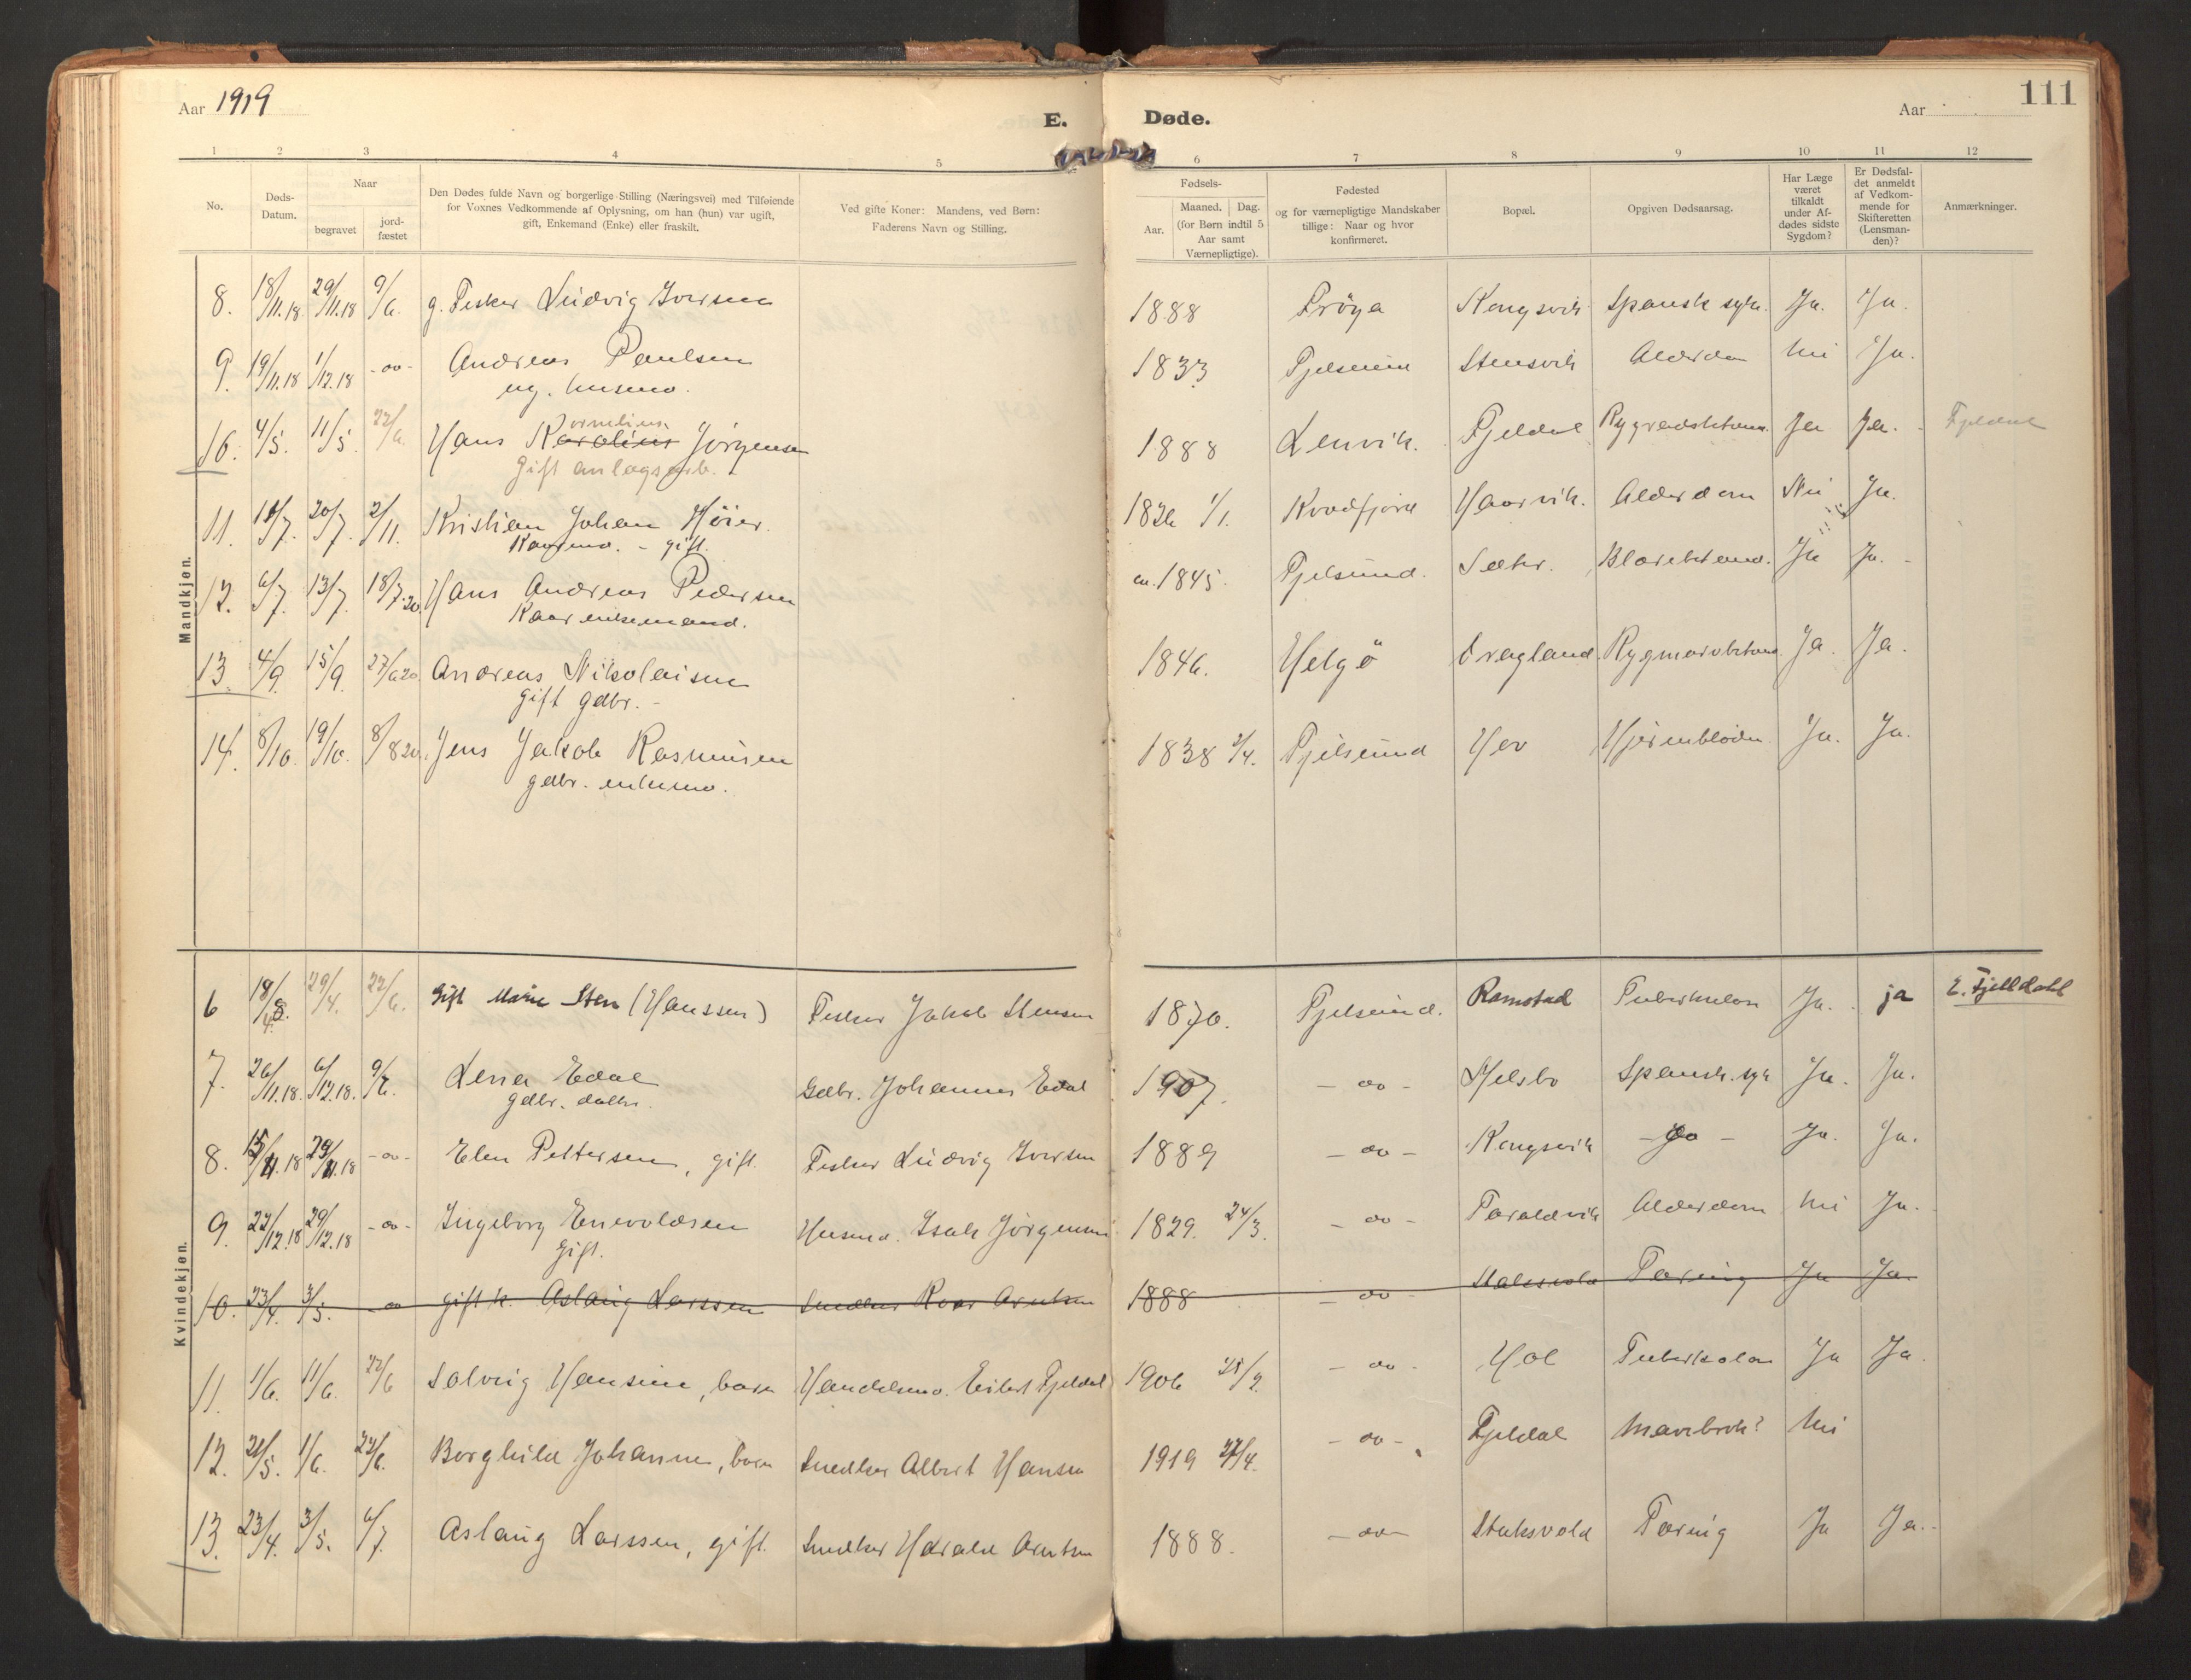 Aar 1919
E. Døde.
Aar
111
1 2 3 4 5 6 7 8 9 10 11 12
No.
Døds-
Datum.
Naar
begravet
jord-
fæstet
Den Dødes fulde Navn og borgerlige Stilling (Næringsvei) med Tilføiende
for Voxnes Vedkommende af Oplysning, om han (hun) var ugift,
gift, Enkemand (Enke) eller fraskilt.
Ved gifte Koner: Mandens, ved Børn:
Faderens Navn og Stilling.
Fødsels-
Aar.
Maaned. Dag.
(for Børn indtil 5
Aar samt
Værnepligtige).
Fødested
og for værnepligtige Mandskaber
tillige: Naar og hvor
konfirmeret.
Bopæl.
Opgiven Dødsaarsag.
Har Læge
været
tilkaldt
under Af-
dødes sidste
Sygdom?
Er Dødsfal-
det anmeldt
af Vedkom-
mende for
Skifteretten
(Lensman-
den)?
Anmærkninger.
Mandkjøn.
8. 18/11.18 29/11.18 9/6. g. Fisker Ludvig Iversen 1888 Frøya Kongsvik Spansk syk. Ja. Ja.
9. 19/11.18 1/12.18 -oo- Andreas Paulsen 1833 Fjelsund Stensvik Alderdom Nei Ja.
ug. husmd.
10. 4/5. 11/5. 22/6. Hans Karolius Jørgensen 1888 Lenvik. Fjeldal Ja Ja. Fjeldal
ornelius
Gift anlægsarb.
11. 20/7. 2/11. Kristian Johan Høier. 1826 1/1. Kvædfjord Haarvik. Alderdom Nei Ja.
Kaarmd. - gift.
12. 6/7. 13/7. 18/7.20. Hans Andreas Pedersen ca. 1845. Fjelsund. Sæter. Ja Ja.
Kaarenkemand.
13. 4/9. 15/9. 27/6 20. Andreas Nikolaisen 1846. Helgö Dragland Ja. Ja.
Gift Gdbr.
14. 8/10. 19/10. 8/8 20. Jens Jakob Rasmusen 1838 2/4. Fjelsund Hov Ja. Ja.
gdbr. enkemd.
Kvindekjøn.
6 18/4. 29/4. 22/6. Gift Marie Sten (Hanssen) Fisker Jakob Stensen 1870. Fjelsund. Ramstad Tuberkulose Ja. ja E. Fjelldahl
7. 26/11.18. 6/12.18. 9/6. Lena Edal Gdbr. Johannes Edal 1907. -oo- Spansk. syk Ja. Ja.
Gdbr. datter.
8. 15/11.18 29/11.18 -oo- Elen Pettersen, gift. Fisker Ludvig Iversen 1889 -oo- Kongsvik -oo- Ja. Ja.
9. 22/12.18 29/12.18 -oo- Ingeborg Enevoldsen Husmd. Isak Jørgensen 1829. 24/3. -oo- Taraldvik Alderdom Nei Ja.
Gift.
10. 23/4. 3/5. -oo gift k. Aslaug Larssen Snedker Roar Arntsen 1888 -oo- Staksvold Tæring Ja Ja.
11. 1/6. 11/6. 22/6 Solveig Hansine, barn Handelsmd. Eilert Fjeldal 1906 -oo- Hol Tuberkulose Ja Ja.
12. 21/5. 1/6. 22/6. Borghild Johanne, barn Snedker Albert Hansen 1919 27/4. -oo- Fjeldal Mavebrok? Nei
13. 23/4. 3/5. 6/7. Aslaug Larssen, gift. Snedker Harald Arntsen 1888. -oo- Staksvold Tæring Ja Ja.